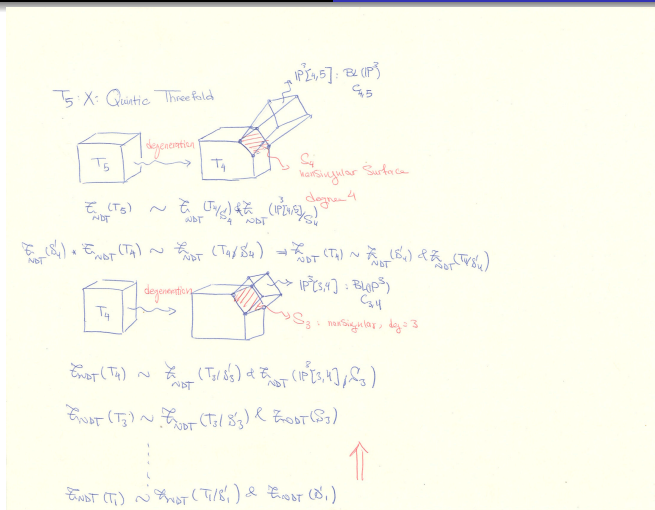 IP³[4,5] : BL(IP³)
C₄,₅
T₅ : X : Quintic Threefold
degeneration
T₅
T₄
S₄
nonsingular Surface
degree 4
Z_NDT (T₅) ~ Z_NDT (T₄/S₄) & Z_NDT (IP³[4,5]/S₄)
Z_NDT (S₄) * Z_NDT (T₄) ~ Z_NDT (T₄/S₄) ⇒ Z_NDT (T₄) ~ Z_NDT (S₄) & Z_NDT (T₄/S₄)
degeneration
IP³[3,4] : BL(IP³)
C₃,₄
T₄
S₃ : nonsingular, deg = 3
Z_NDT (T₄) ~ Z_NDT (T₃/S₃) & Z_NDT (IP³[3,4], S₃)
Z_NDT (T₃) ~ Z_NDT (T₃/S₃) & Z_NDT (S₃)
Z_NDT (T₁) ~ Z_NDT (T₁/S₁) & Z_NDT (S₁)